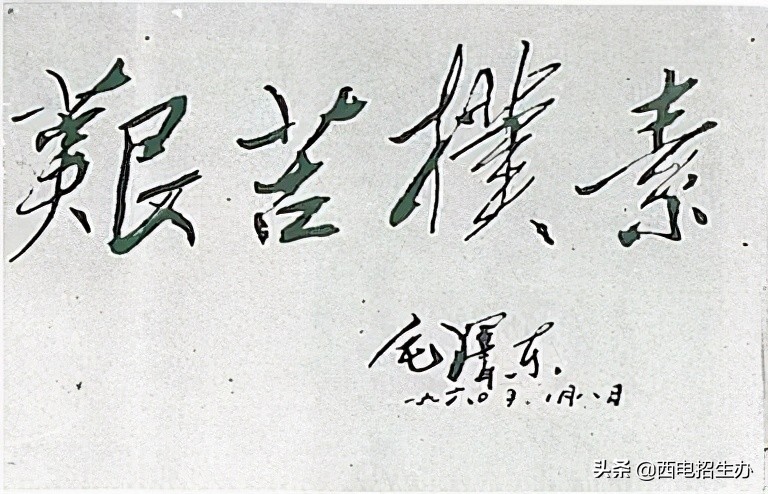 艱苦樸素
毛澤东
一九六〇年一月八日
头条 @西电招生办